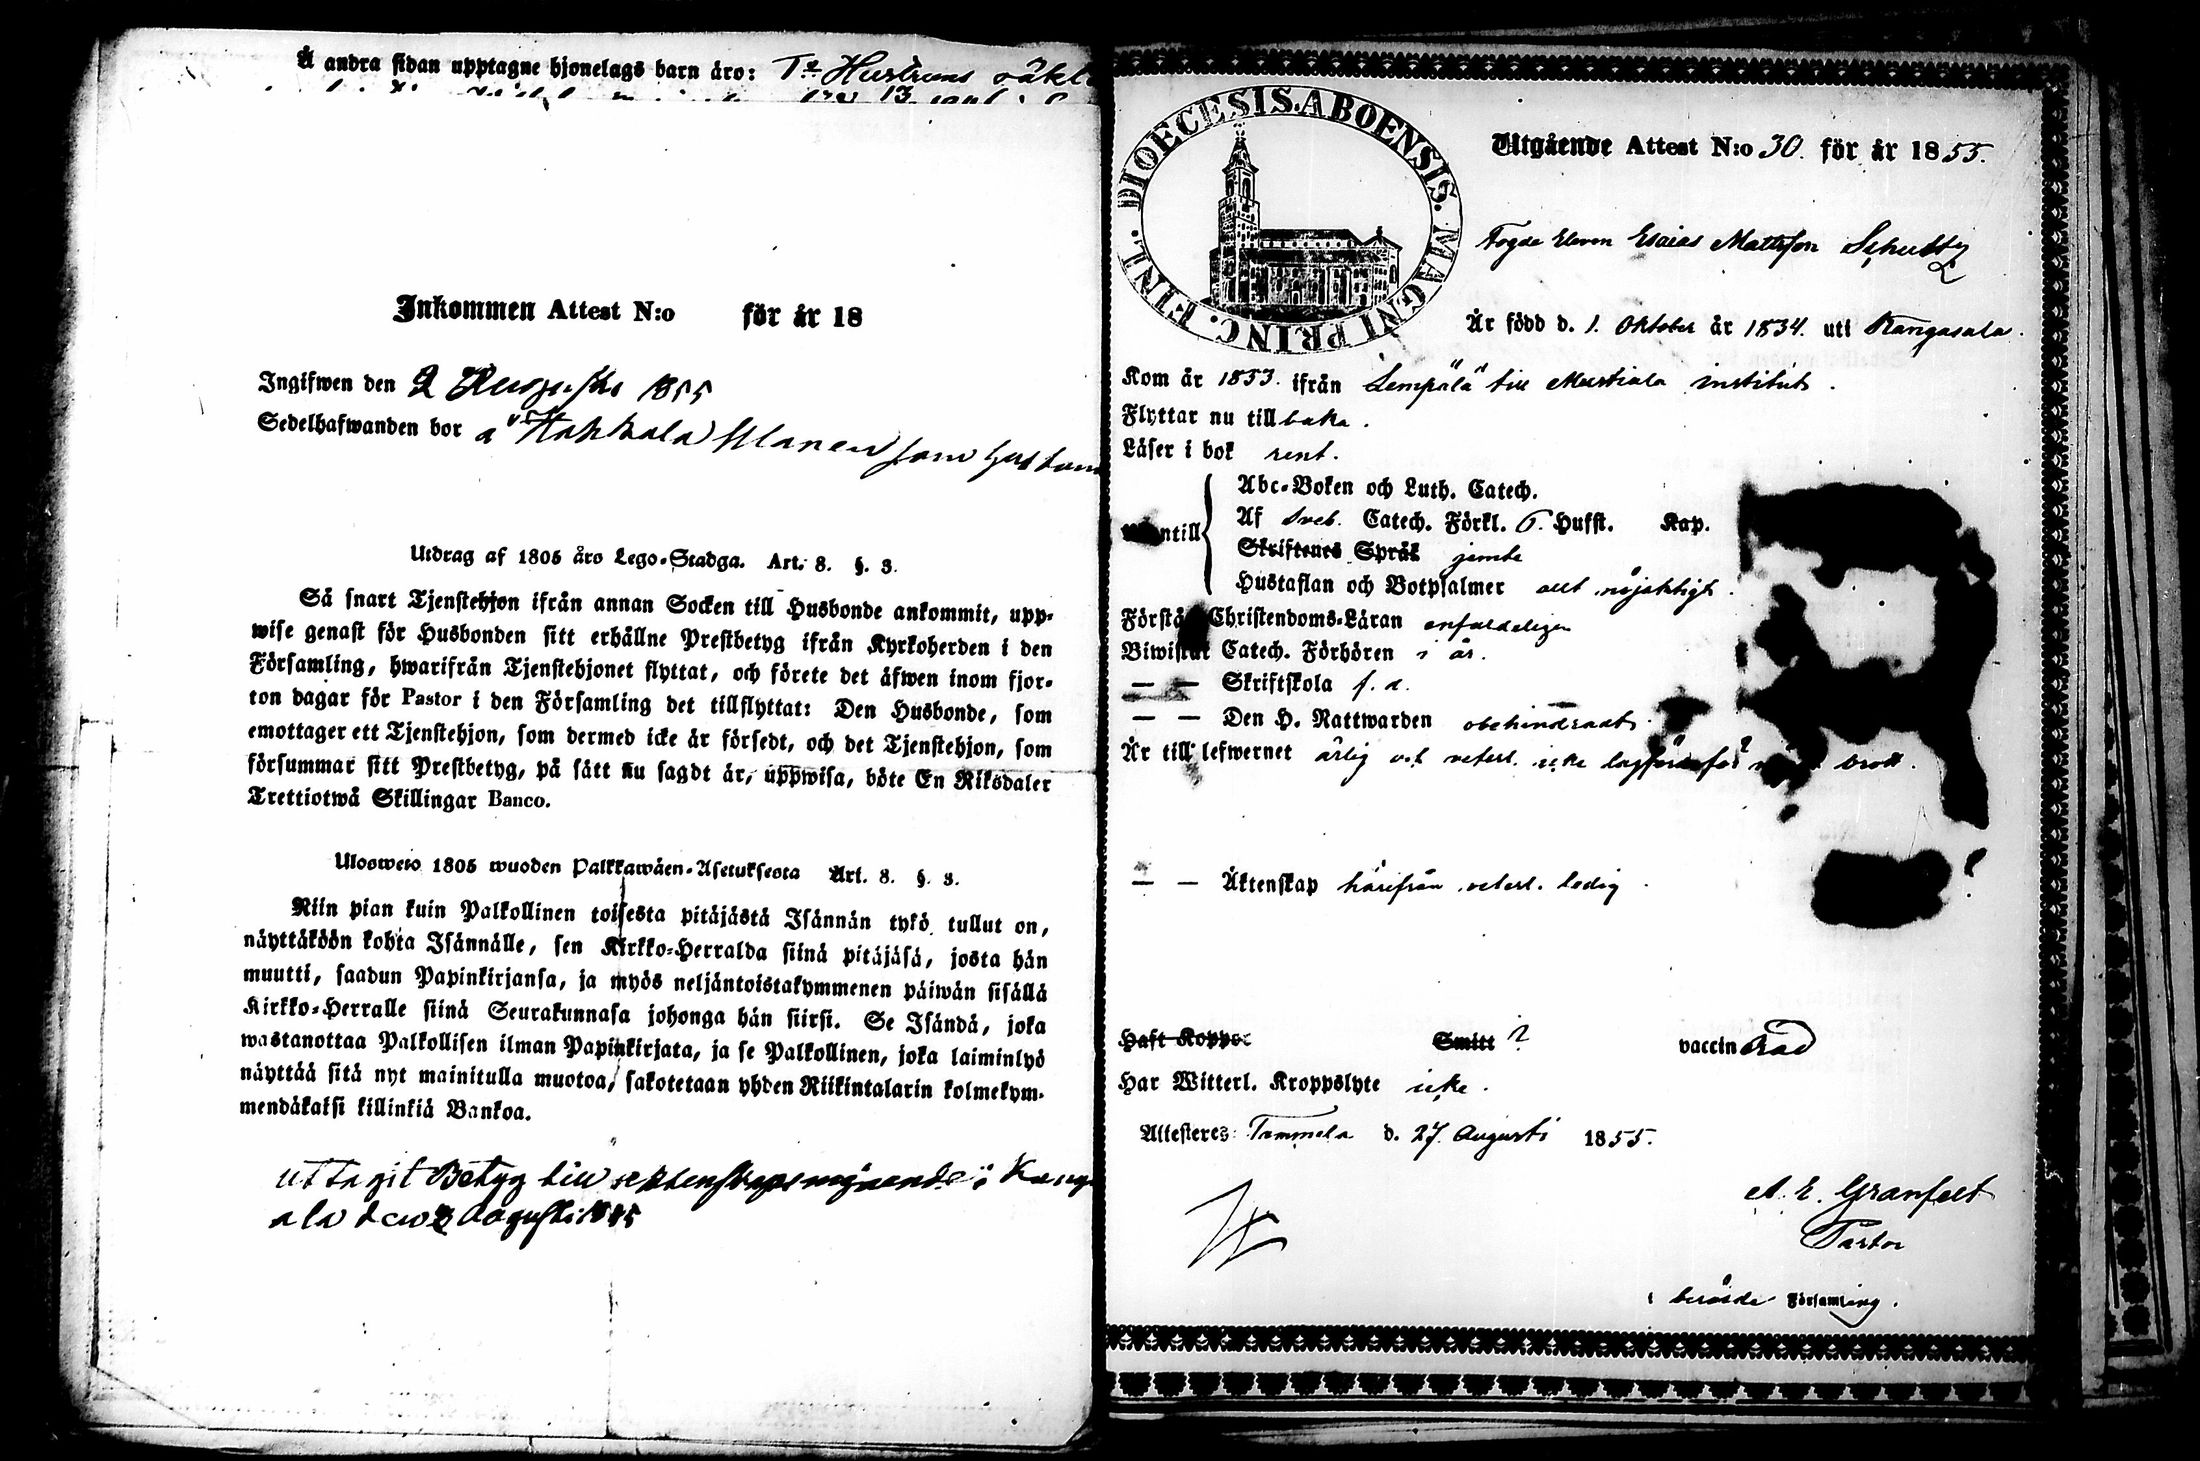 Å andra sidan upptagne hjonelags barn äro: Hustruns
Inkommen Attest N:o för år 18
Ingifwen den 2 Augusti 1855
Sedelhafwanden bor å
Utdrag af 1805 års Lego-Stadga. Art. 8. §. 3.
Så snart Tjenstehjon ifrån annan Socken till Husbonde ankommit, upp-
wise genast för Husbonden sitt erhållne Prestbetyg ifrån Kyrkoherden i den
Församling, hwarifrån Tjenstehjonet flyttat, och förete det äfwen inom fjor-
ton dagar för Pastor i den Församling det tillflyttat: Den Husbonde, som
emottager ett Tjenstehjon, som dermed icke är försedt, och det Tjenstehjon, som
försummar sitt Prestbetyg, på sätt nu sagdt är, uppwisa, böte En Riksdaler
Trettiotwå Skillingar Banco.
Ulosweto 1805 wuoden Palkkawäen-Asetuksesta Art. 8. §. 3.
Niin pian kuin Palkollinen toisesta pitäjästä Isännän tykö tullut on,
näyttäköön kohta Isännälle, sen Kirkko-Herralda siinä pitäjäsä, josta hän
muutti, saadun Papinkirjansa, ja myös neljäntoistakymmenen päiwän sisällä
Kirkko-Herralle siinä Seurakunnasa johonga hän siirsi. Se Isändä, joka
wastanottaa Palkollisen ilman Papinkirjata, ja se Palkollinen, joka laiminlyö
näyttää sitä nyt mainitulla muotoa, sakotetaan yhden Riikintalarin kolmekym-
mendäkaksi killinkiä Bankoa.
uttagit Betyg till ektenskaps ingående i Kang
ala den Augusti
DIOECESIS.ABOENSIS. MAGNI PRINC. FINL.
Utgående Attest N:o 30. för år 1855.
Fogde Eleven Esaias Mattsson Schultz
Är född d. 1. Oktober år 1834. uti Kangasala.
Kom år 1853. ifrån Lempälä till Mustiala institut.
Flyttar nu tillbaka.
Läser i bok rent.
Wantill
Abc-Boken och Luth. Catech.
Af Sveb. Catech. Förkl. 6. Hufst. Kap.
Skriftenes Språk jemte
Hustaflan och Botpsalmer allt nöjaktigt.
Förstår Christendoms-Läran enfaldeligen
Biwistat Catech. Förhören i år.
— — Skriftskola f. d.
— — Den H. Nattwarden obehindradt.
Är till lefwernet ärlig och veterl. icke lagförd för brott.
— — Äktenskap härifrån veterl. ledig.
Haft Koppor Smitt vaccinerad
Har Witterl. Kroppslyte icke.
Attesteres Tammela d. 27. Augusti 1855.
A. E. Granfelt
Pastor
i berörde Församling.